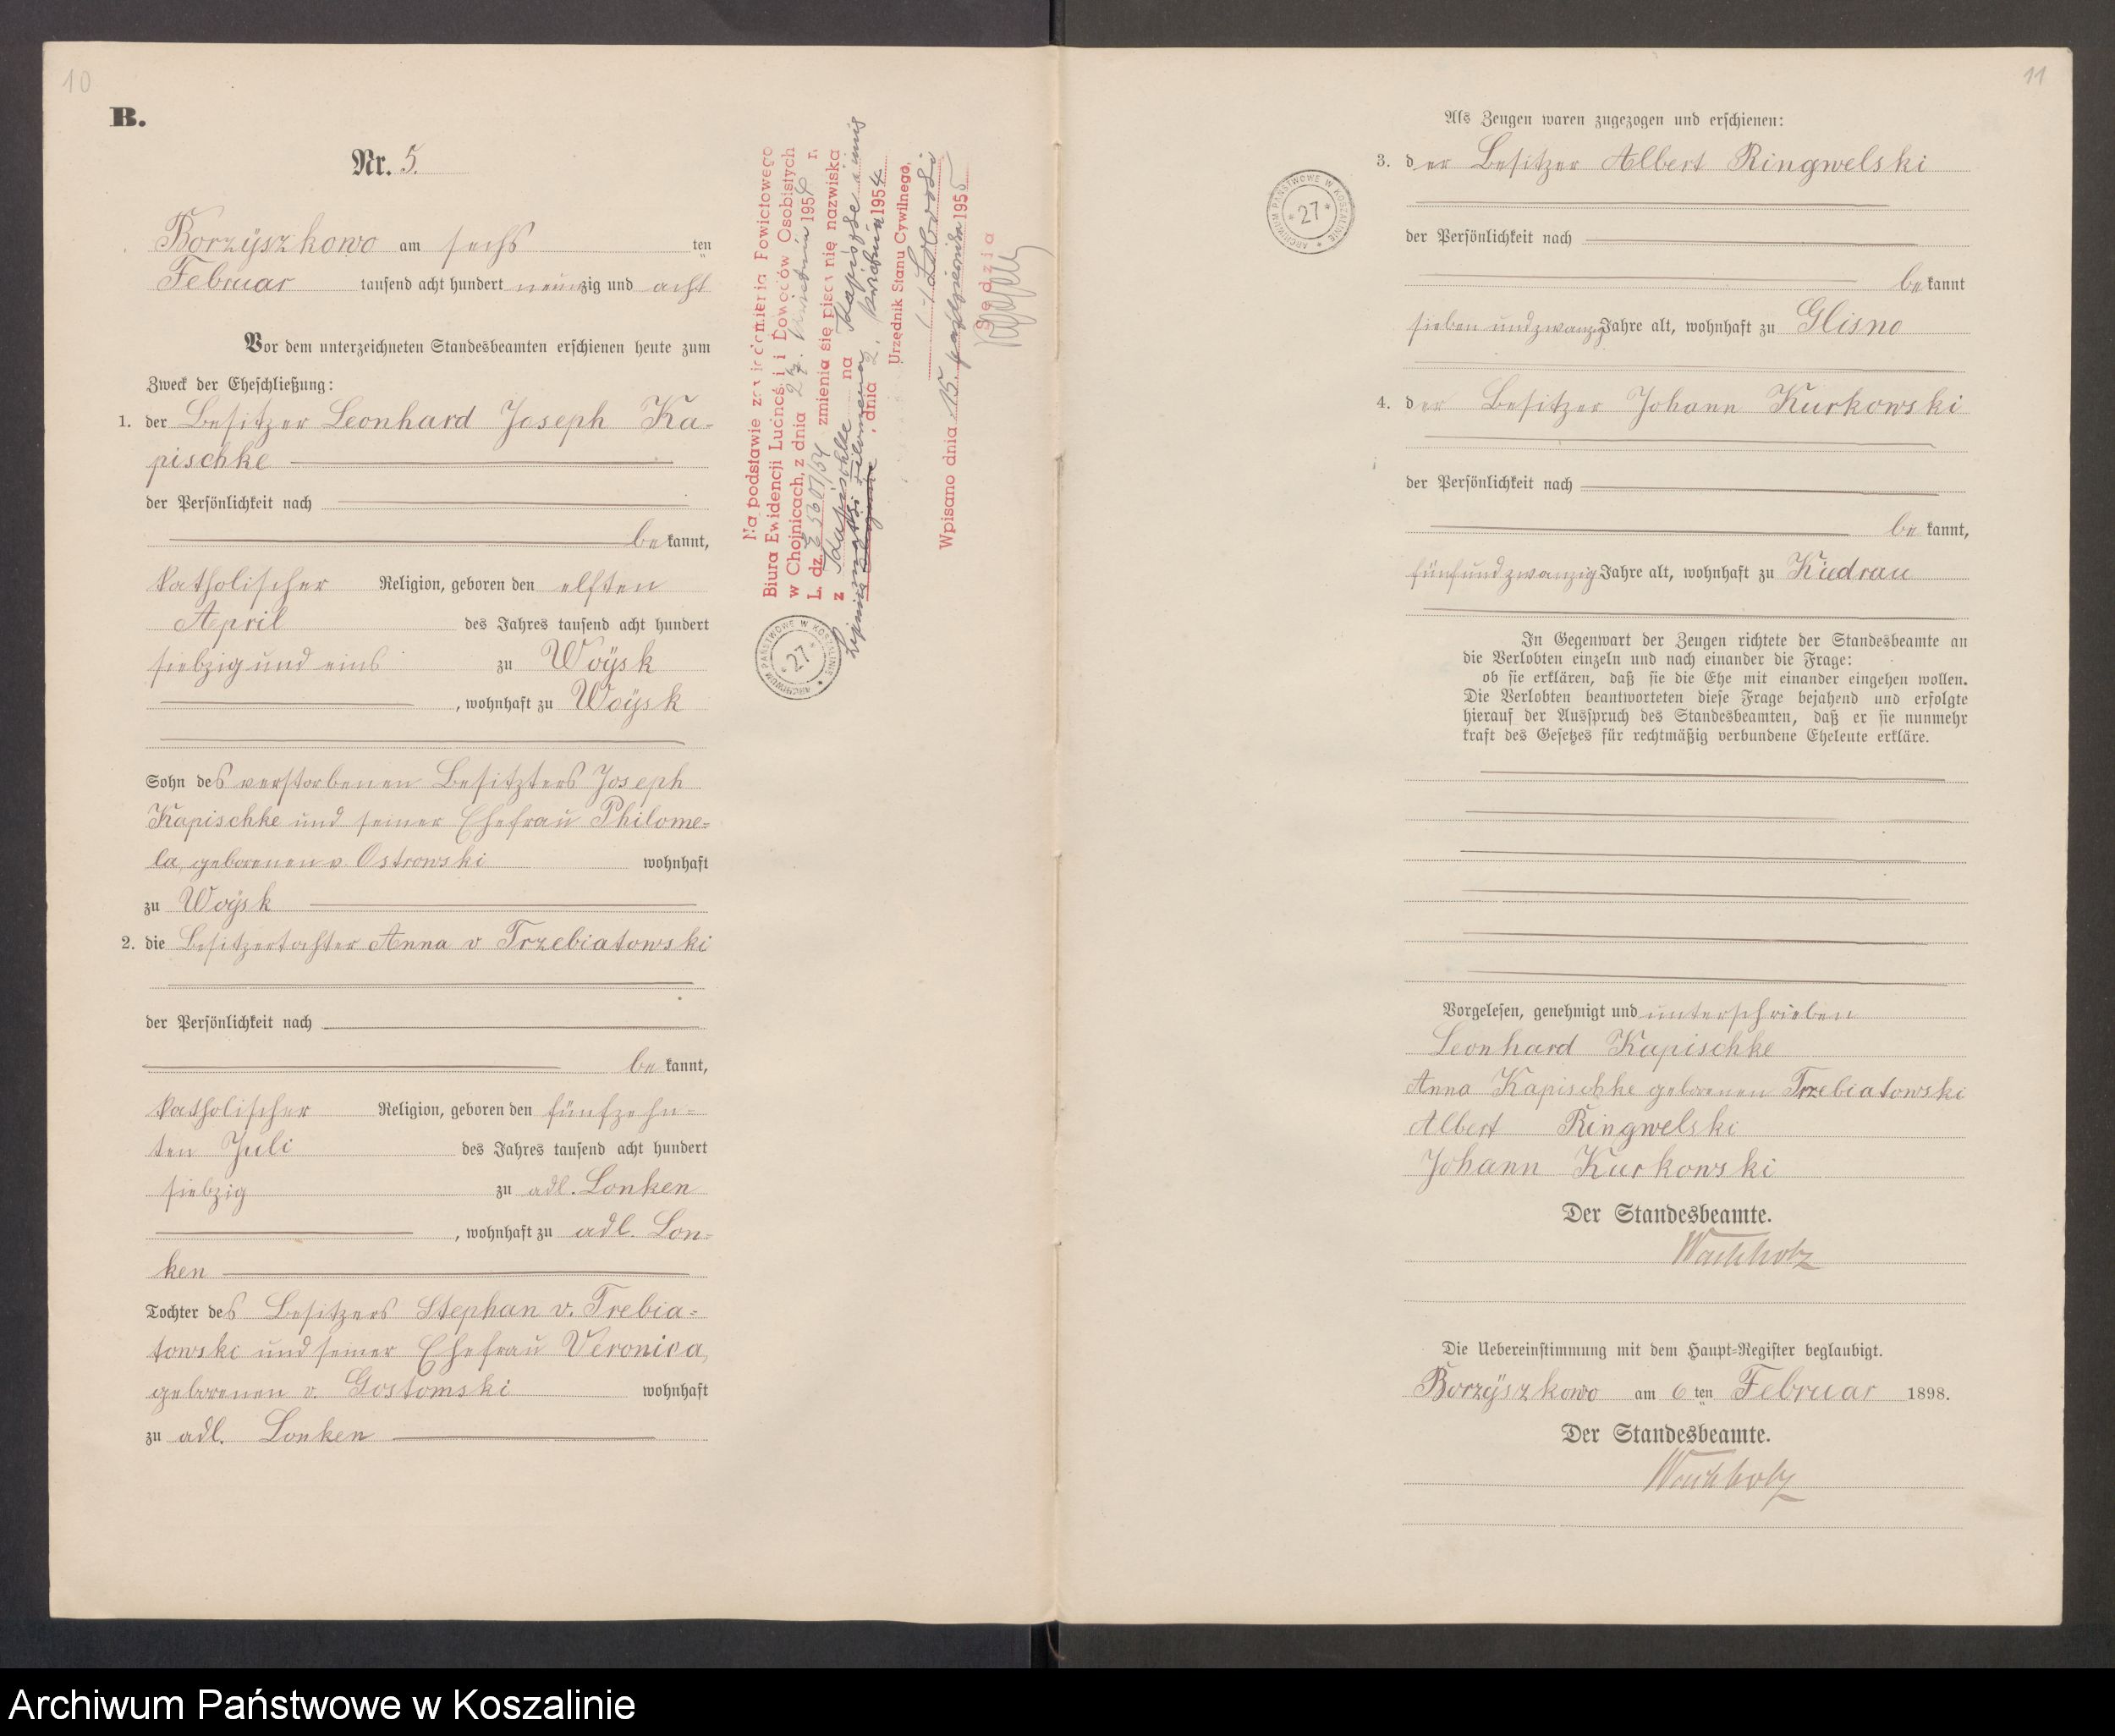 10
B.
Nr. 5.
Borzÿszkowo am sechsten
Februar tausend acht hundert neunzig und acht
Vor dem unterzeichneten Standesbeamten erschienen heute zum
Zweck der Eheschließung:
1. der Besitzer Leonhard Joseph Ka-
pischke
der Persönlichkeit nach
bekannt,
katholischer Religion, geboren den elften
April des Jahres tausend acht hundert
siebzig und eins zu Woÿsk
, wohnhaft zu Woÿsk
Sohn des verstorbenen Besitzters Joseph
Kapischke und seiner Ehefrau Philome=
la, geborenen v. Ostrowski wohnhaft
zu Woÿsk
2. die Besitzertochter Anna v Trzebiatowski
der Persönlichkeit nach
bekannt,
katholischer Religion, geboren den fünfzehn=
ten Juli des Jahres tausend acht hundert
siebzig zu adl. Lonken
, wohnhaft zu adl. Lon=
ken
Tochter des Besitzers Stephan v. Trebia=
towski und seiner Ehefrau Veronica,
geborenen v. Gostomski wohnhaft
zu adl. Lonken
Na podstawie zawiadomienia Powiatowego
Biura Ewidencji Ludności i Dowodów Osobistych
w Chojnicach, z dnia 27. kwietnia 1954 r.
L. dz. zmienia się pisownię nazwiska
z Kapischke na Kapiszke a imię
Filomena
Lipnica, dnia 2. 1954
Urzędnik Stanu Cywilnego,
Wpisano dnia 15. października 1955
Sędzia
ARCHIWUM PAŃSTWOWE W KOSZALINIE
* 27 *
11
ARCHIWUM PAŃSTWOWE W KOSZALINIE
* 27 *
Als Zeugen waren zugezogen und erschienen:
3. der Besitzer Albert Ringwelski
der Persönlichkeit nach
bekannt
siebenundzwanzig Jahre alt, wohnhaft zu Glisno
4. der Besitzer Johann Kurkowski
der Persönlichkeit nach
bekannt,
fünfundzwanzig Jahre alt, wohnhaft zu Kiedrau
In Gegenwart der Zeugen richtete der Standesbeamte an
die Verlobten einzeln und nach einander die Frage:
ob sie erklären, daß sie die Ehe mit einander eingehen wollen.
Die Verlobten beantworteten diese Frage bejahend und erfolgte
hierauf der Ausspruch des Standesbeamten, daß er sie nunmehr
kraft des Gesetzes für rechtmäßig verbundene Eheleute erkläre.
Vorgelesen, genehmigt und unterschrieben
Leonhard Kapischke
Anna Kapischke geborenen Trzebiatowski
Albert Ringwelski
Johann Kurkowski
Der Standesbeamte.
Wachholz
Die Uebereinstimmung mit dem Haupt-Register beglaubigt.
Borzÿszkowo am 6ten Februar 1898.
Der Standesbeamte.
Wachholz
Archiwum Państwowe w Koszalinie